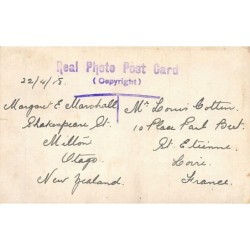 Real Photo Post Card
(Copyright)
22/4/18.
Margaret E Marshall
Shakespeare St.
Milton
Otago
New Zealand.
Mr Louis Cottin
10 Place Park
St. Etienne.
Loire.
France.